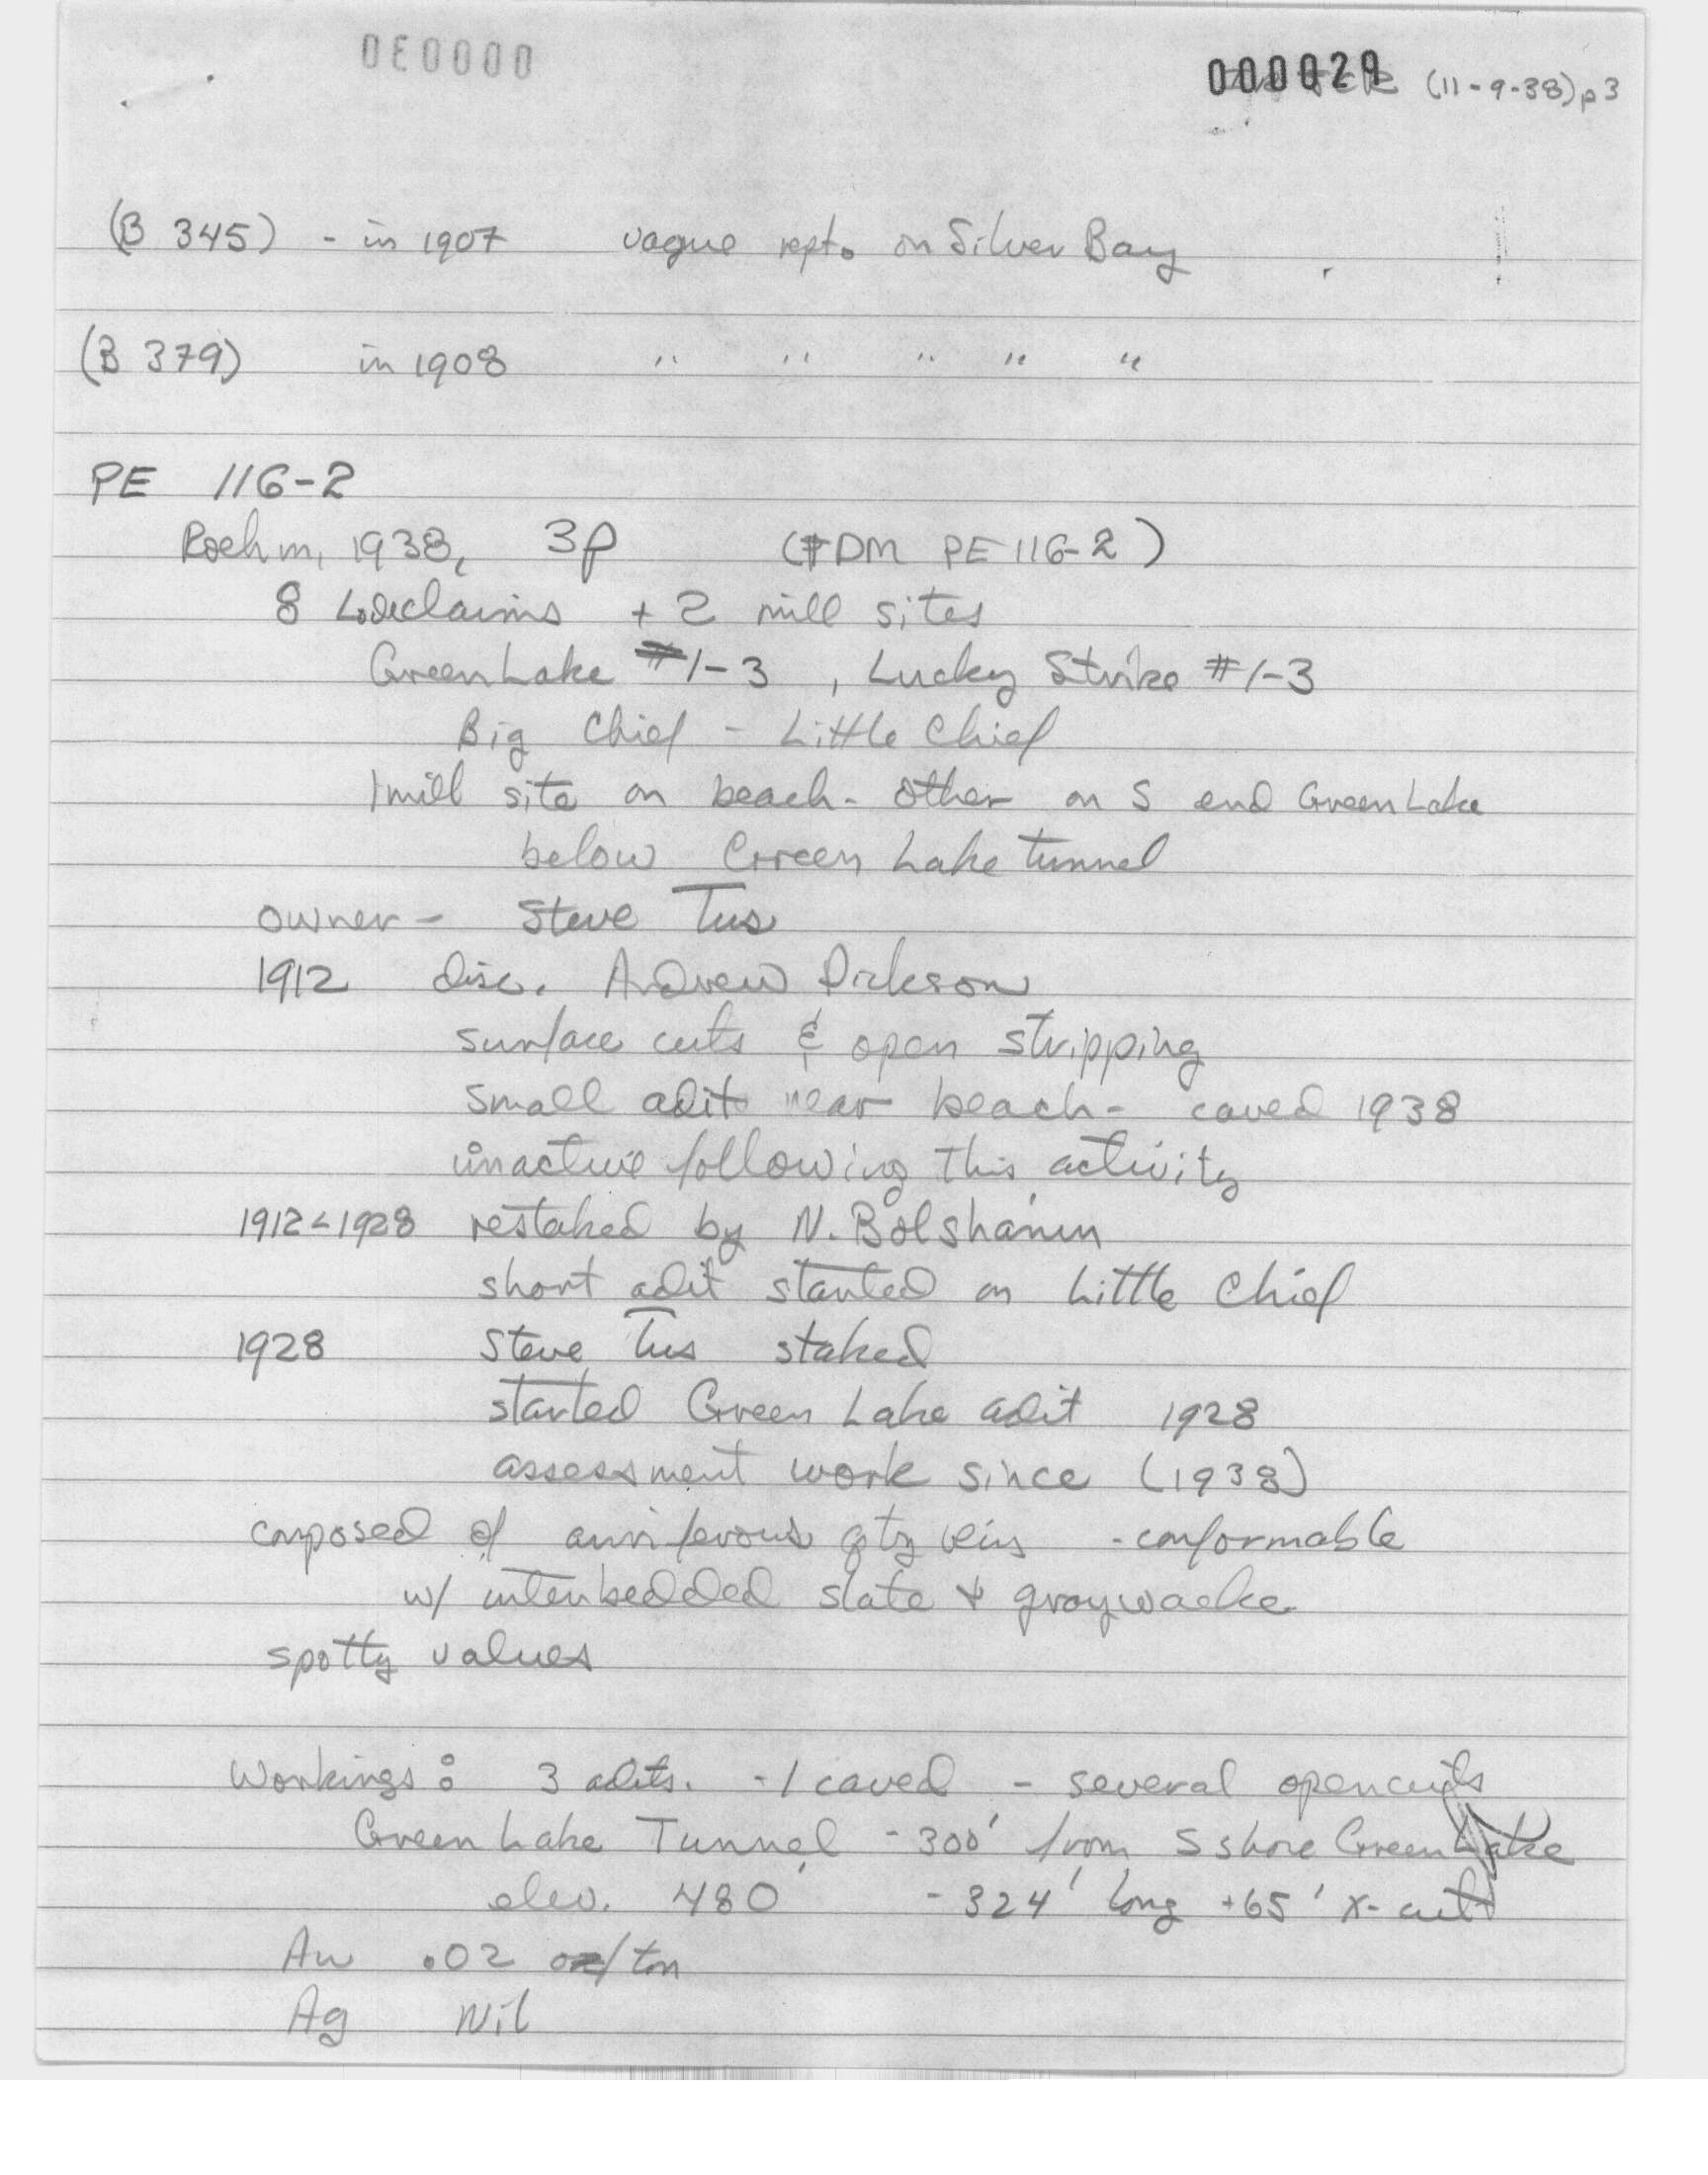 000030
000029 (11-9-38) p3
(B 345) - in 1907 vague rept. on Silver Bay
(B 379) in 1908 " " " " "
PE 116-2
Roehm, 1938, 3p (TDM PE 116-2)
8 Lodeclaims + 2 mill sites
Green Lake #1-3, Lucky Strike #1-3
Big Chief - Little Chief
1 mill site on beach - other on S end Green Lake
below Green Lake tunnel
owner - Steve Tus
1912 disc. Andrew Dickson
surface cuts & open stripping
small adit near beach - caved 1938
inactive following this activity
1912<1928 restaked by N. Bolshanin
short adit started on Little Chief
1928 Steve Tus staked
started Green Lake adit 1928
assessment work since (1938)
composed of auriferous qtz veins - conformable
w/ interbedded slate & graywacke
spotty values
Workings: 3 adits. - 1 caved - several opencuts
Green Lake Tunnel - 300' from S shore Green Lake
elev. 480' - 324' long + 65' x-cut
Au .02 oz/ton
Ag Nil